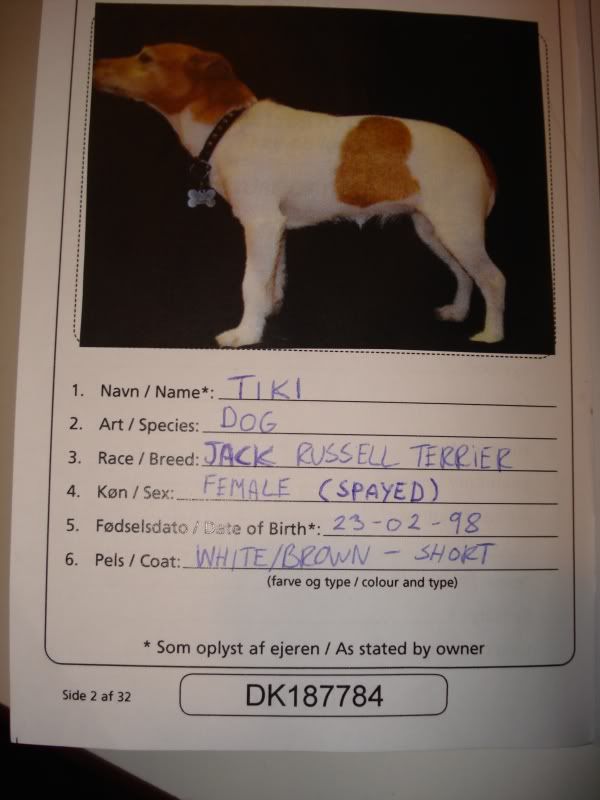 1. Navn / Name*: TIKI
2. Art / Species: DOG
3. Race / Breed: JACK RUSSELL TERRIER
4. Køn / Sex: FEMALE (SPAYED)
5. Fødselsdato / Date of Birth*: 23-02-98
6. Pels / Coat: WHITE/BROWN - SHORT
(farve og type / colour and type)
* Som oplyst af ejeren / As stated by owner
Side 2 af 32
DK187784